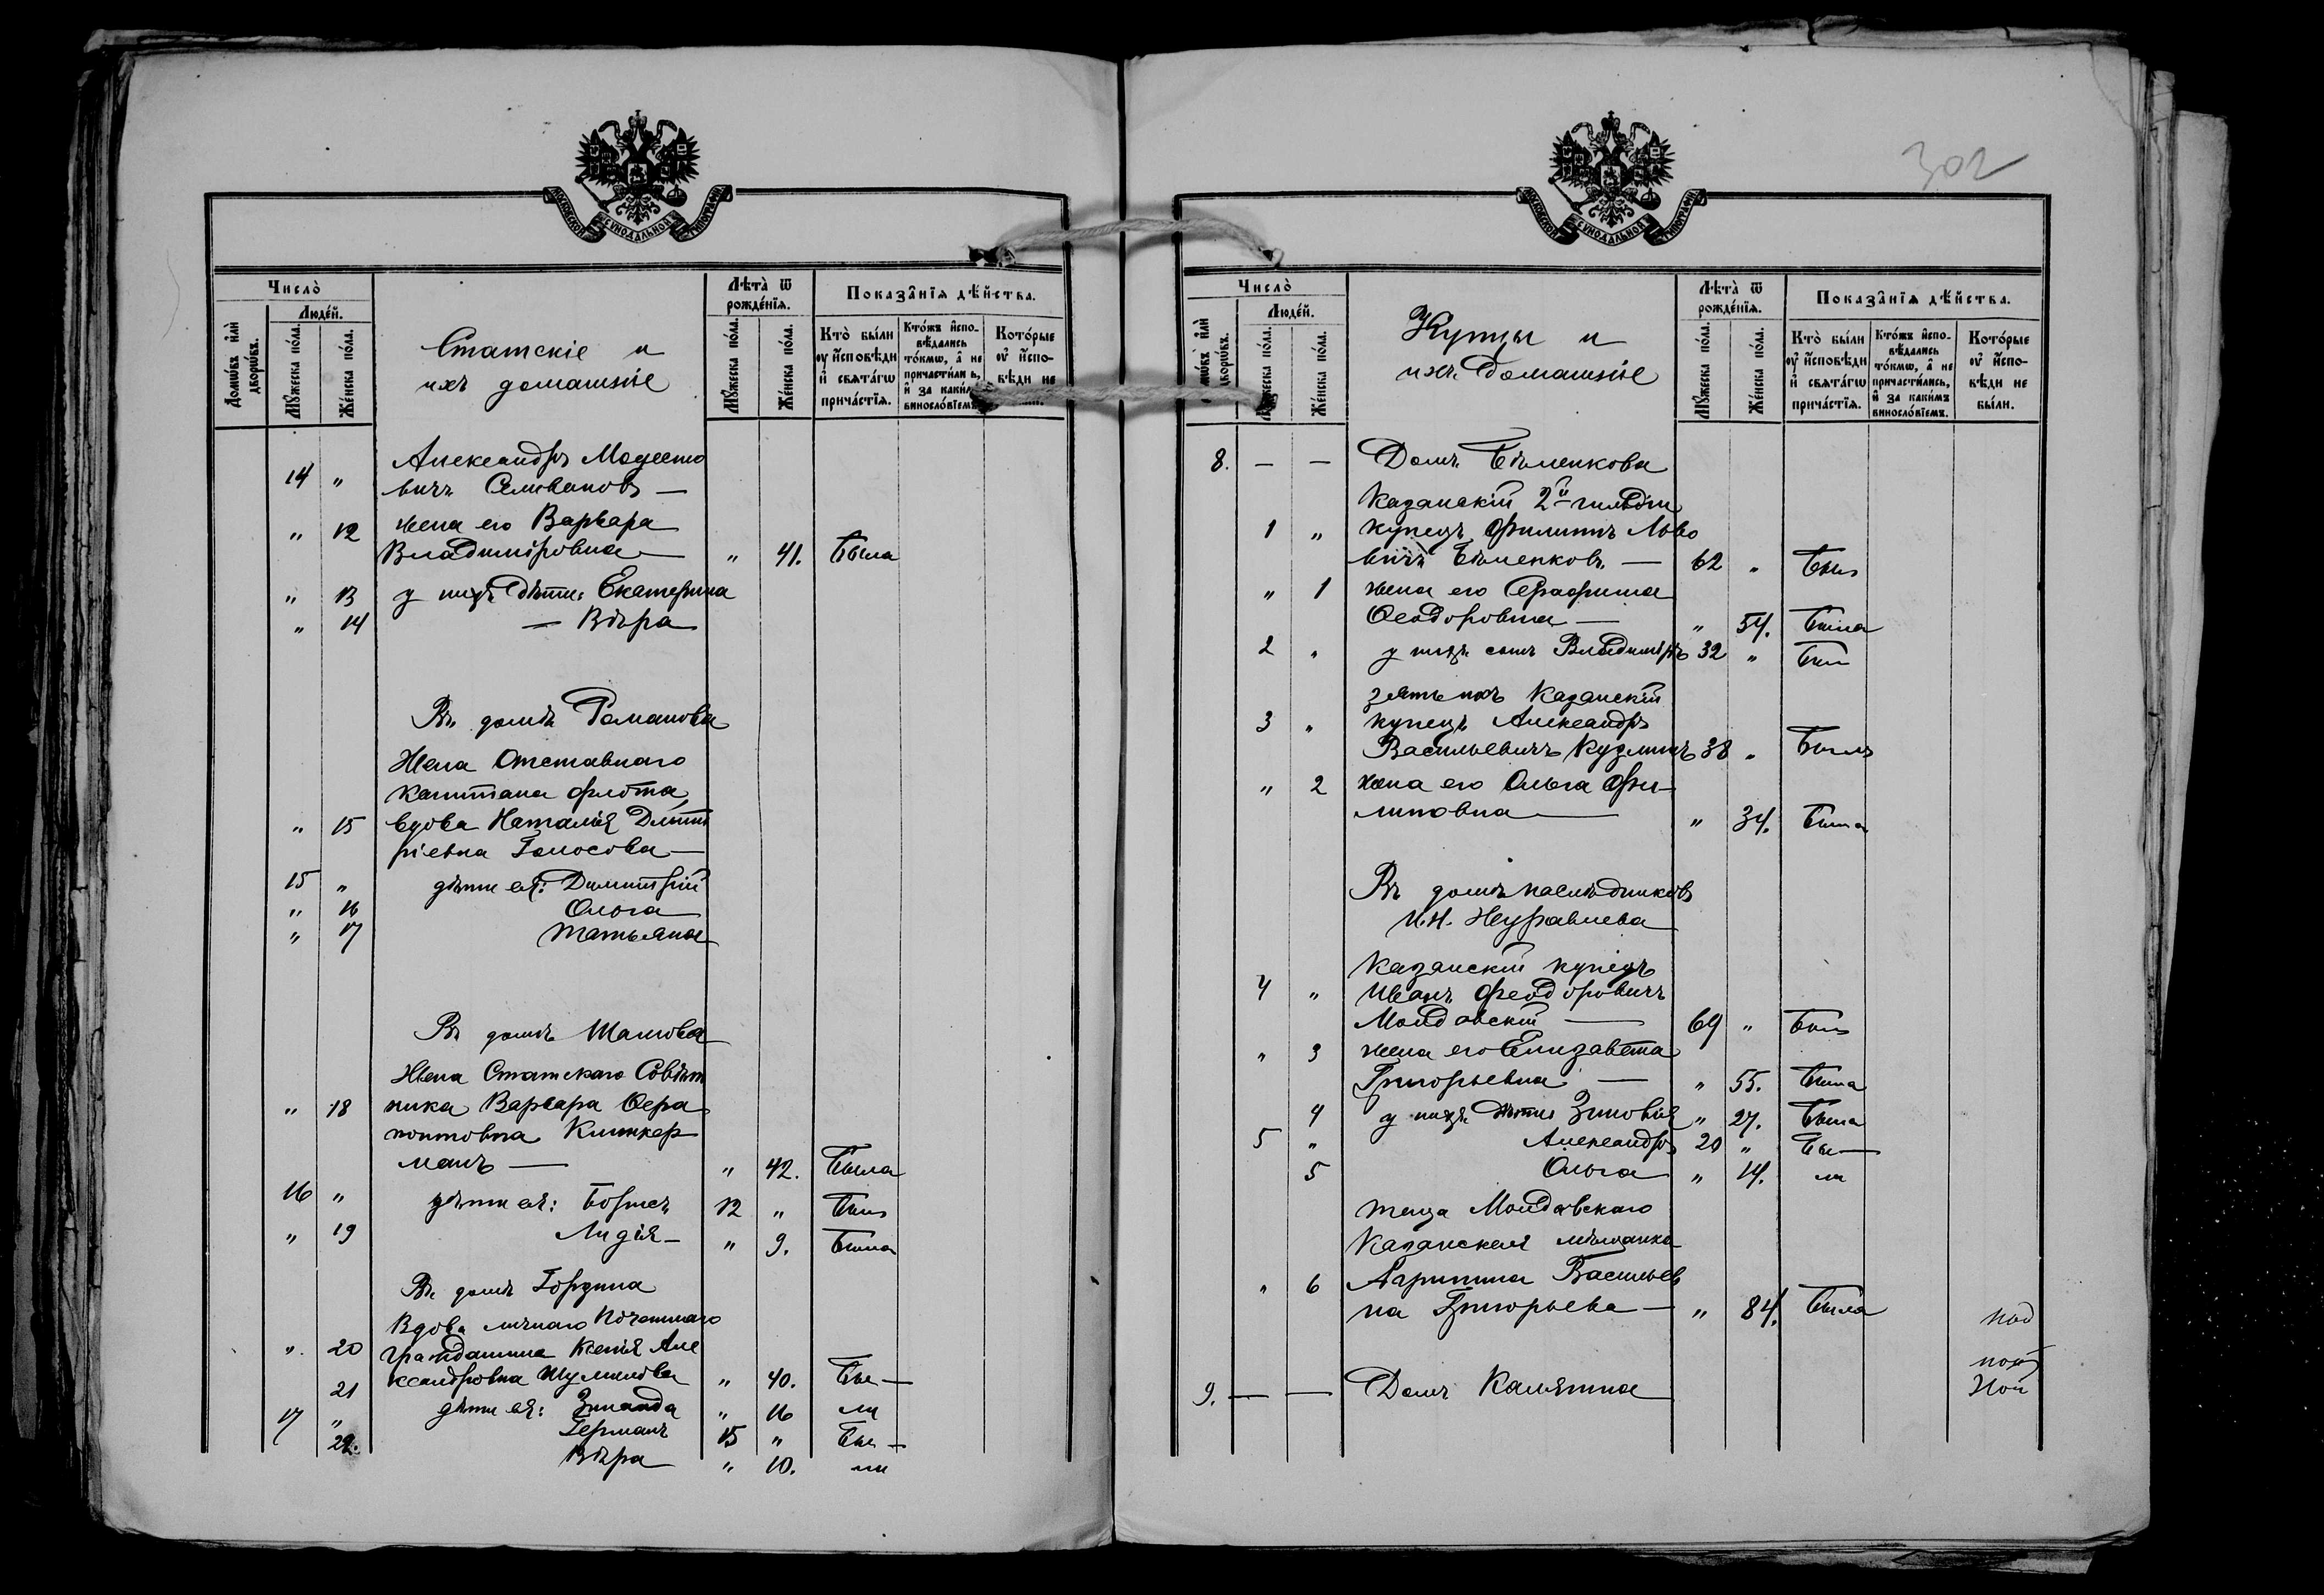 МОСКОВСКОЙ СУНОДАЛЬНОЙ ТИПОГРАФІИ
Число̀
Людей.
Домѡвъ и҆лѝ дворѡвъ.
Мꙋжеска по́ла.
Же́нска по́ла.
Статскіе и
ихъ домашніе
Лѣта̀ ѿ рожде́нїѧ.
Мꙋжеска по́ла.
Же́нска по́ла.
Показа̂нїѧ дѣ́йства.
Кто̀ бы́ли ᲂу҆ и҆сповѣди и҆ свѧта́гѡ прича́стїѧ.
Кто́жъ и҆спо- вѣдались то́кмѡ, а҆ не причасти́ли ь, и҆ за каки́м винослові́емъ
Кото́рые ᲂу҆ и҆спо- вѣди не
14 „ Александръ Модесто
вичъ Селивановъ —
„ 12 жена его Варвара
Владиміровна — „ 41. Была
„ 13 у нихъ дѣти: Екатерина
„ 14 — Вѣра
Въ домѣ Романова
Жена Отставнаго
Капитана флота
„ 15 вдова Наталія Дмит
ріевна Голосова —
15 „ дѣти ея: Димитрій
„ 16 Ольга
„ 17 Татьяна
Въ домѣ
Жена Статскаго Совѣт
„ 18 ника Варвара Ѳера
понтовна Клинкер
манъ — „ 42. Была
16 „ дѣти ея: Борисъ 12 „ Былъ
„ 19 Лидія — „ 9. Была
Въ домѣ
Вдова личнаго Почетнаго
„ 20 гражданина Ксенія Але
ксандровна Шумилова „ 40. Бы —
21 дѣти ея: Зинаида „ 16 ли
17 „ Германъ 15 „ Бы —
22. Вѣра „ 10. ли
302
МОСКОВСКОЙ СУНОДАЛЬНОЙ ТИПОГРАФІИ
Число̀
Людей.
дворѡвъ.
Же́нска по́ла.
Купцы и
ихъ домашніе
Лѣта̀ ѿ рожде́нїѧ.
Мꙋжеска по́ла.
Же́нска по́ла.
Показа̂нїѧ дѣ́йства.
Кто̀ бы́ли ᲂу҆ и҆сповѣди и҆ свѧта́гѡ прича́стїѧ.
Кто́жъ и҆спо- вѣдались то́кмѡ, а҆ не причасти́лись, и҆ за каки́мъ винослові́емъ.
Кото́рые ᲂу҆ и҆спо- вѣди не бы́ли.
8. — — Домъ Бѣленкова
Казанскій 2й гильдіи
1 „ купецъ Филиппъ Льво
вичъ Бѣленковъ — 62 „ Былъ
„ 1 жена его Серафима
Ѳеодоровна — „ 54. Была
2 „ у нихъ сынъ Владиміръ 32 „ Былъ
зять ихъ Казанскій
3 „ купецъ Александръ
Васильевичъ Кузминъ 38 „ Былъ
„ 2 жена его Ольга Фи-
липовна — „ 34. Была
Въ домѣ наслѣдниковъ
И.Н. Журавлева
Казанскій купецъ
4 „ Иванъ Феодоровичъ
Молдавскій — 69 „ Былъ
„ 3 жена его Елизавета
Григорьевна — „ 55. Была
4 у нихъ дѣти Зиновія „ 27. Была
5 „ Александръ 20 „ Бы —
5 Ольга „ 14. ли
теща Молдавскаго
Казанская мѣщанка
„ 6 Агрипина Васильев
на Григорьева — „ 84. Была
9. — — Домъ Калягина